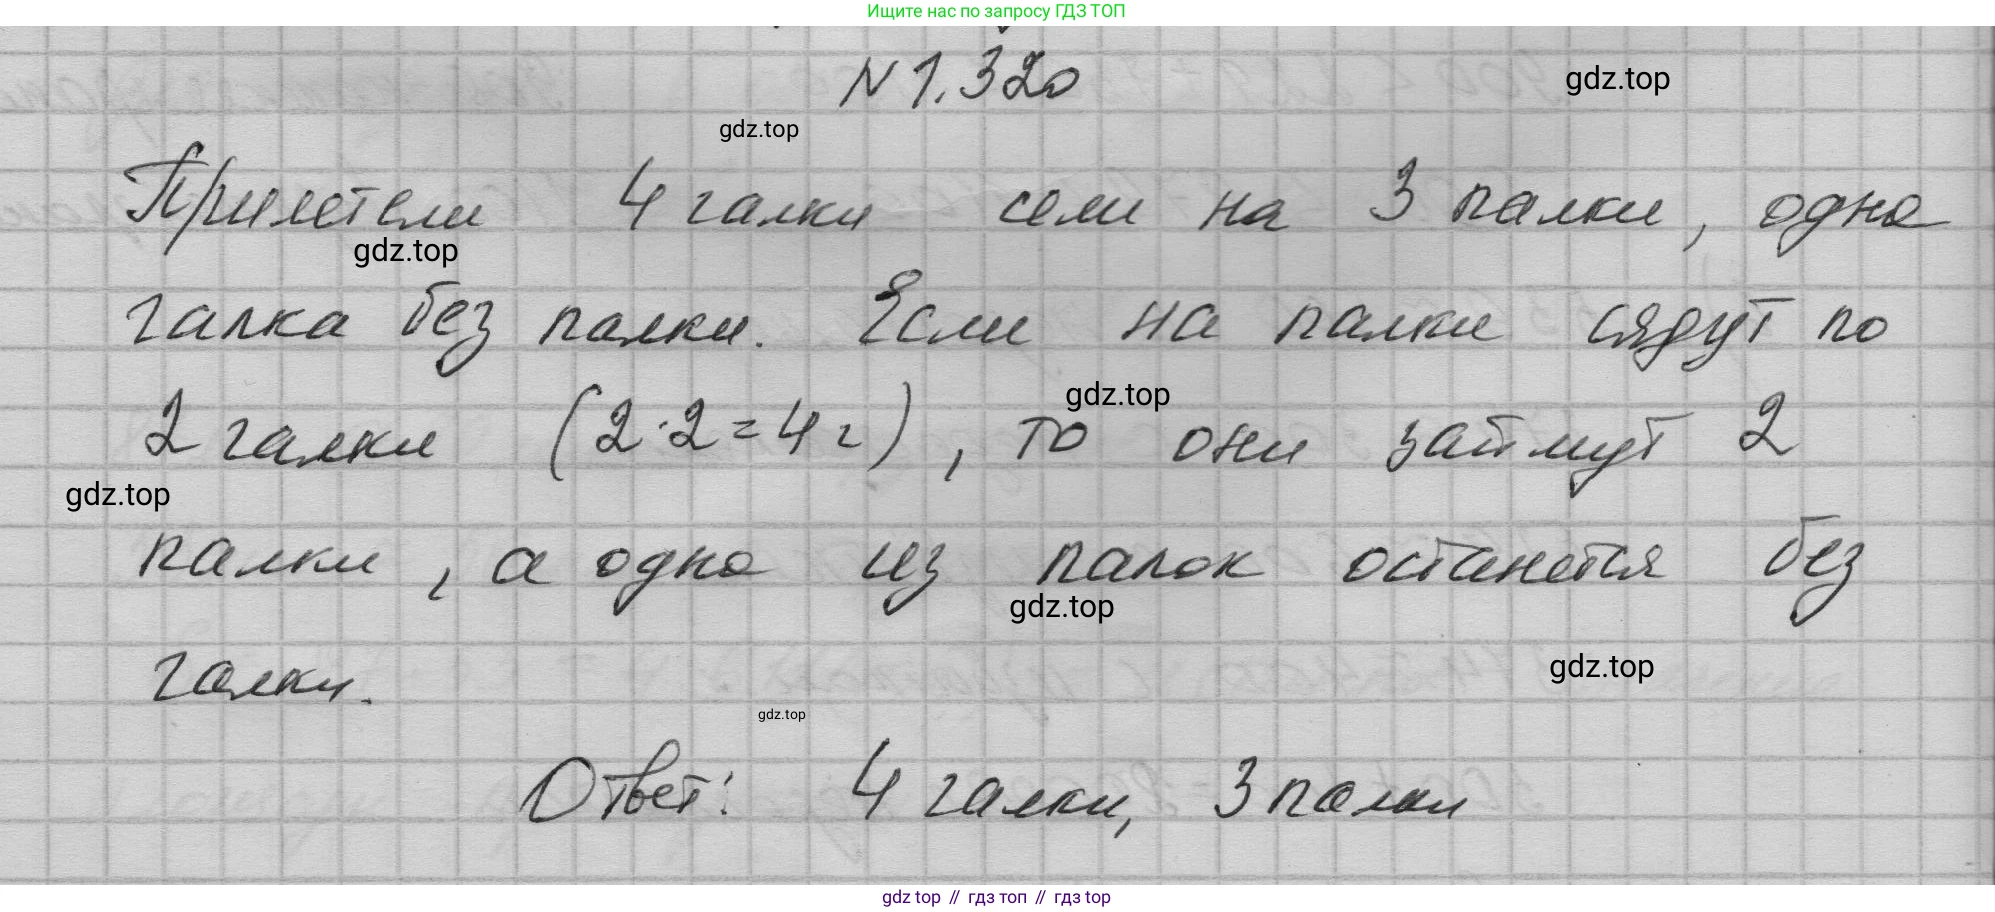 Ищите нас по запросу ГДЗ ТОП
N 1.320
gdz.top
gdz.top
Прилетели 4 галки сели на 3 палки, одна
gdz.top
галка без палки. Если на палки сядут по
gdz.top
2 галки (2·2=4г), то они займут 2
gdz.top
палки, а одна из палок останется без
gdz.top
галки.
gdz.top
gdz.top
Ответ: 4 галки, 3 палки
gdz top // гдз топ // гдз top